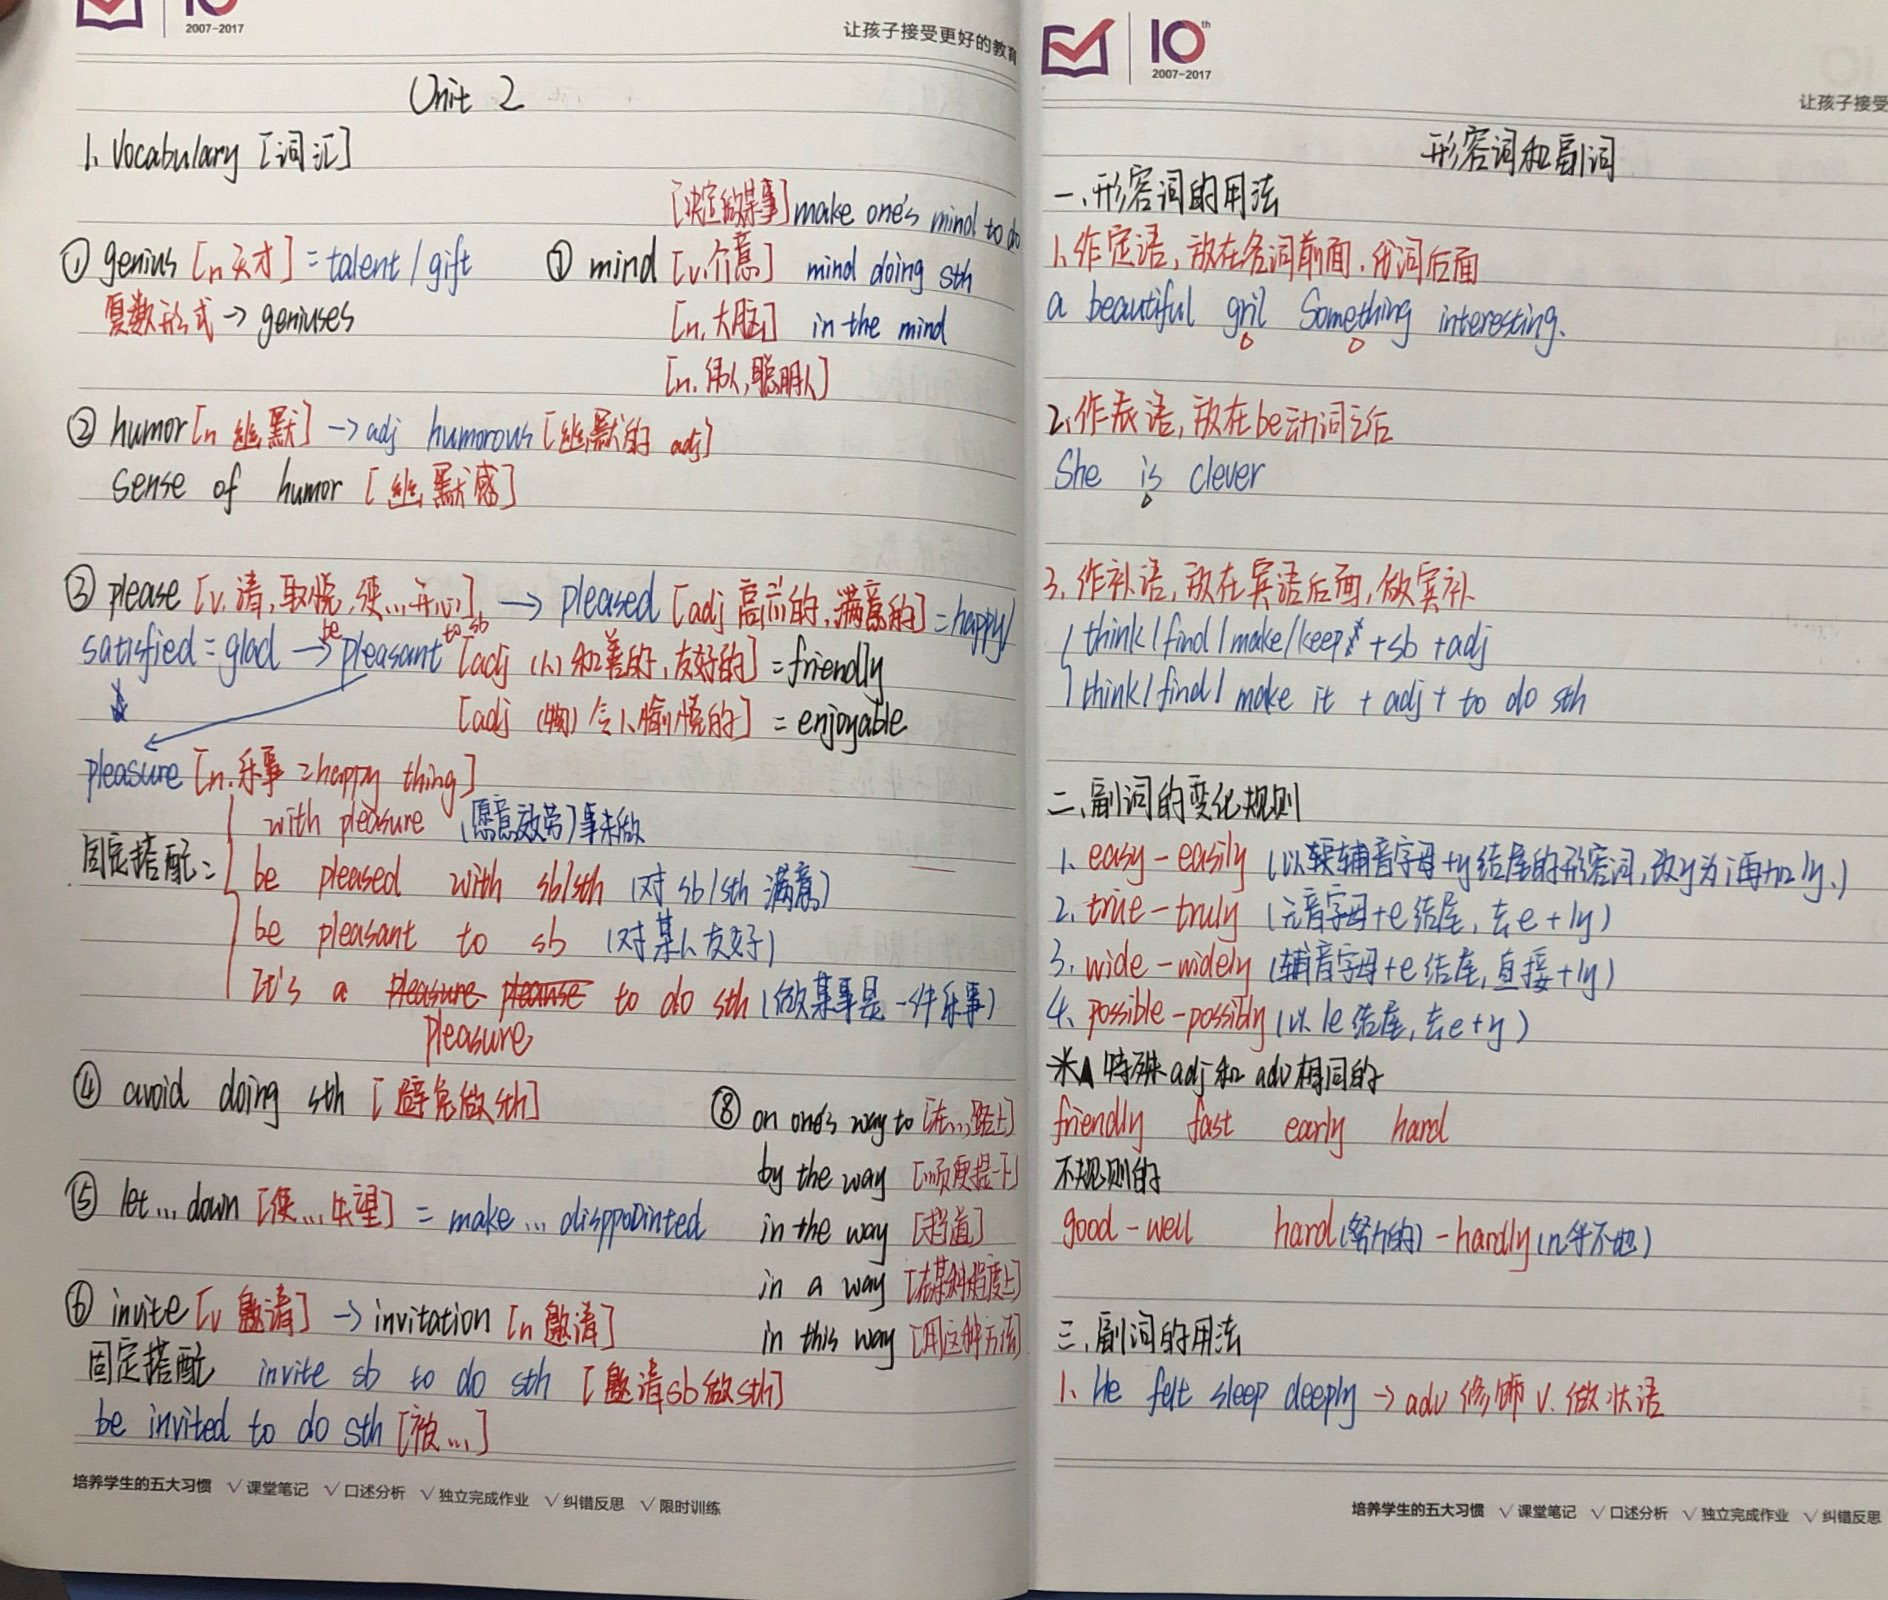 10
2007-2017
让孩子接受更好的教育
Unit 2
1. Vocabulary [词汇]
[决定做某事] make one's mind to do
① genius [n 天才] = talent / gift
复数形式 → geniuses
⑦ mind [v.介意] mind doing sth
[n. 大脑] in the mind
[n. 伟人,聪明人]
② humor [n 幽默] → adj humorous [幽默的 adj]
sense of humor [幽默感]
③ please [v. 请,取悦,使...开心] → pleased [adj 高兴的,满意的] = happy/
satisfied = glad → be pleasant to sb [adj (人) 和善的,友好的] = friendly
[adj (物) 令人愉悦的] = enjoyable
pleasure [n. 乐事 = happy thing]
with pleasure (愿意效劳) 事未做
固定搭配:
be pleased with sb/sth (对 sb/sth 满意)
be pleasant to sb (对某人友好)
It's a pleasure please to do sth (做某事是一件乐事)
pleasure
④ avoid doing sth [避免做sth]
⑤ let ... down [使...失望] = make ... disppointed
⑥ invite [v 邀请] → invitation [n 邀请]
固定搭配 invite sb to do sth [邀请sb做sth]
be invited to do sth [被...]
⑧ on one's way to [在...路上]
by the way [顺便提一下]
in the way [挡道]
in a way [在某种程度上]
in this way [用这种方法]
培养学生的五大习惯 √课堂笔记 √口述分析 √独立完成作业 √纠错反思 √限时训练
10th
2007-2017
让孩子接受
形容词和副词
一、形容词的用法
1. 作定语,放在名词前面,代词后面
a beautiful gril Something interesting.
2. 作表语,放在be动词之后
She is clever
3. 作补语,放在宾语后面,做宾补
think / find / make / keep + sb + adj
think / find / make it + adj + to do sth
二、副词的变化规则
1. easy - easily (以辅音字母+y结尾的形容词,改y为i再加ly.)
2. true - truly (元音字母+e结尾,去e+ly)
3. wide - widely (辅音字母+e结尾,直接+ly)
4. possible - possibly (以le结尾,去e+y)
米▲ 特殊adj和adv相同的
friendly fast early hard
不规则的
good - well hard (努力的) - hardly (几乎不地)
三、副词的用法
1. He felt sleep deeply → adv 修饰 v. 做状语
培养学生的五大习惯 √课堂笔记 √口述分析 √独立完成作业 √纠错反思